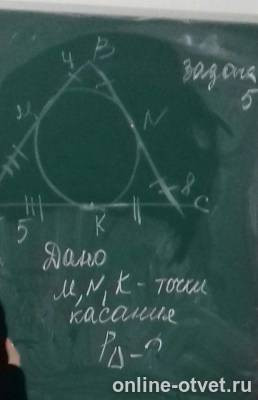 Задача
5
4
B
M
N
8
C
5
K
Дано
M, N, K - точки
касания
P△ - ?
online-otvet.ru